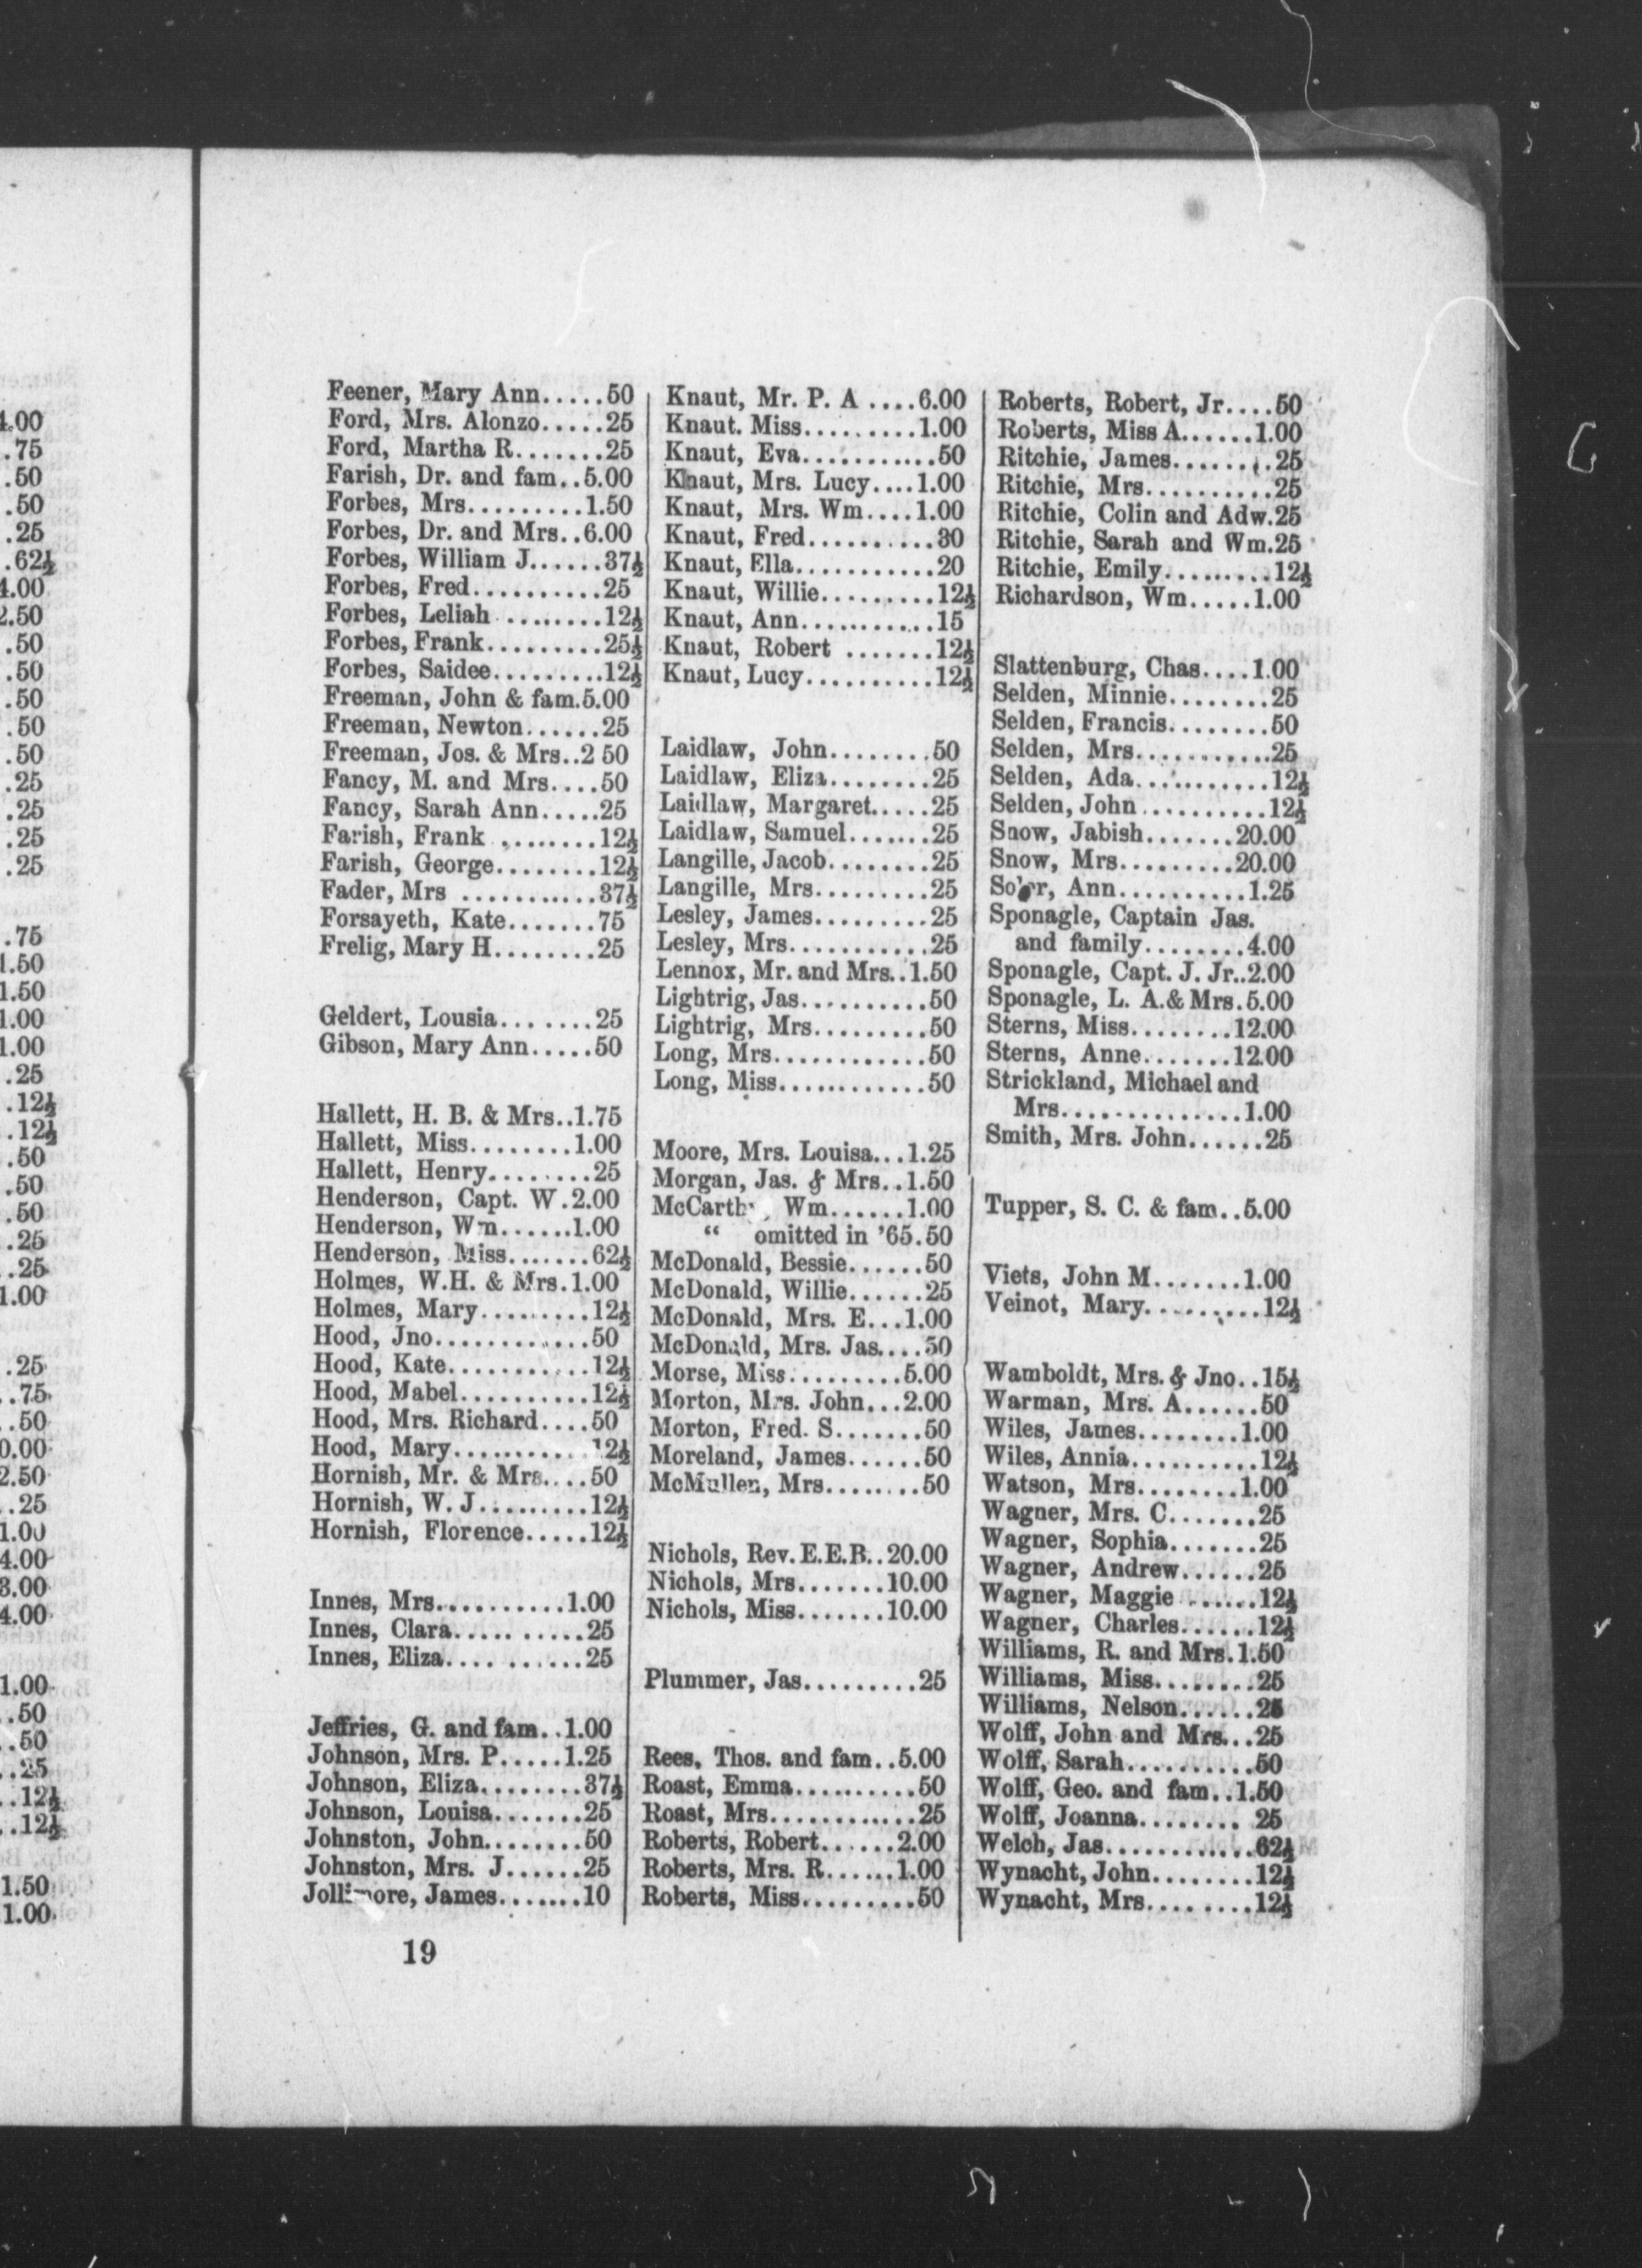 4.00
.75
.50
.50
.25
.62½
4.00
2.50
.50
.50
.50
.50
.50
.25
.25
.25
.25
.75
1.50
1.50
1.00
1.00
.25
.12½
.12½
.50
.50
.50
.25
.25
1.00
..25
..75
..50
0.00
2.50
..25
1.00
4.00
3.00
4.00
1.00
..50
..50
..25
..12½
..12½
1.50
1.00
Feener, Mary Ann.....50
Ford, Mrs. Alonzo.....25
Ford, Martha R.......25
Farish, Dr. and fam..5.00
Forbes, Mrs.........1.50
Forbes, Dr. and Mrs..6.00
Forbes, William J......37½
Forbes, Fred..........25
Forbes, Leliah ........12½
Forbes, Frank.........25½
Forbes, Saidee.........12½
Freeman, John & fam.5.00
Freeman, Newton......25
Freeman, Jos. & Mrs..2 50
Fancy, M. and Mrs....50
Fancy, Sarah Ann.....25
Farish, Frank ........12½
Farish, George........12½
Fader, Mrs ..........37½
Forsayeth, Kate.......75
Frelig, Mary H........25
Geldert, Lousia........25
Gibson, Mary Ann.....50
Hallett, H. B. & Mrs..1.75
Hallett, Miss........1.00
Hallett, Henry........25
Henderson, Capt. W.2.00
Henderson, Wm......1.00
Henderson, Miss.......62½
Holmes, W.H. & Mrs.1.00
Holmes, Mary.........12½
Hood, Jno............50
Hood, Kate...........12½
Hood, Mabel..........12½
Hood, Mrs. Richard....50
Hood, Mary...........12½
Hornish, Mr. & Mrs....50
Hornish, W. J.........12½
Hornish, Florence.....12½
Innes, Mrs...........1.00
Innes, Clara..........25
Innes, Eliza..........25
Jeffries, G. and fam..1.00
Johnson, Mrs. P.....1.25
Johnson, Eliza........37½
Johnson, Louisa.......25
Johnston, John........50
Johnston, Mrs. J......25
Jollimore, James.......10
19
Knaut, Mr. P. A ....6.00
Knaut. Miss.........1.00
Knaut, Eva...........50
Knaut, Mrs. Lucy....1.00
Knaut, Mrs. Wm....1.00
Knaut, Fred..........30
Knaut, Ella...........20
Knaut, Willie.........12½
Knaut, Ann...........15
Knaut, Robert .......12½
Knaut, Lucy..........12½
Laidlaw, John........50
Laidlaw, Eliza........25
Laidlaw, Margaret.....25
Laidlaw, Samuel.......25
Langille, Jacob........25
Langille, Mrs.........25
Lesley, James.........25
Lesley, Mrs...........25
Lennox, Mr. and Mrs..1.50
Lightrig, Jas..........50
Lightrig, Mrs.........50
Long, Mrs............50
Long, Miss............50
Moore, Mrs. Louisa...1.25
Morgan, Jas. & Mrs..1.50
McCarthy, Wm......1.00
“ omitted in ’65.50
McDonald, Bessie......50
McDonald, Willie......25
McDonald, Mrs. E...1.00
McDonald, Mrs. Jas....50
Morse, Miss.........5.00
Morton, Mrs. John...2.00
Morton, Fred. S.......50
Moreland, James......50
McMullen, Mrs........50
Nichols, Rev. E.E.B..20.00
Nichols, Mrs.......10.00
Nichols, Miss.......10.00
Plummer, Jas.........25
Rees, Thos. and fam..5.00
Roast, Emma..........50
Roast, Mrs............25
Roberts, Robert......2.00
Roberts, Mrs. R......1.00
Roberts, Miss.........50
Roberts, Robert, Jr....50
Roberts, Miss A......1.00
Ritchie, James........25
Ritchie, Mrs..........25
Ritchie, Colin and Adw.25
Ritchie, Sarah and Wm.25
Ritchie, Emily.........12½
Richardson, Wm.....1.00
Slattenburg, Chas....1.00
Selden, Minnie........25
Selden, Francis........50
Selden, Mrs...........25
Selden, Ada...........12½
Selden, John..........12½
Snow, Jabish.......20.00
Snow, Mrs.........20.00
Ann..........1.25
Sponagle, Captain Jas.
and family........4.00
Sponagle, Capt. J. Jr..2.00
Sponagle, L. A.& Mrs.5.00
Sterns, Miss........12.00
Sterns, Anne.......12.00
Strickland, Michael and
Mrs..............1.00
Smith, Mrs. John......25
Tupper, S. C. & fam..5.00
Viets, John M.......1.00
Veinot, Mary.........12½
Wamboldt, Mrs. & Jno..15½
Warman, Mrs. A......50
Wiles, James........1.00
Wiles, Annia..........12½
Watson, Mrs........1.00
Wagner, Mrs. C.......25
Wagner, Sophia.......25
Wagner, Andrew......25
Wagner, Maggie.......12½
Wagner, Charles......12½
Williams, R. and Mrs.1.50
Williams, Miss........25
Williams, Nelson......25
Wolff, John and Mrs...25
Wolff, Sarah..........50
Wolff, Geo. and fam..1.50
Wolff, Joanna........ 25
Welch, Jas............62½
Wynacht, John........12½
Wynacht, Mrs.........12½